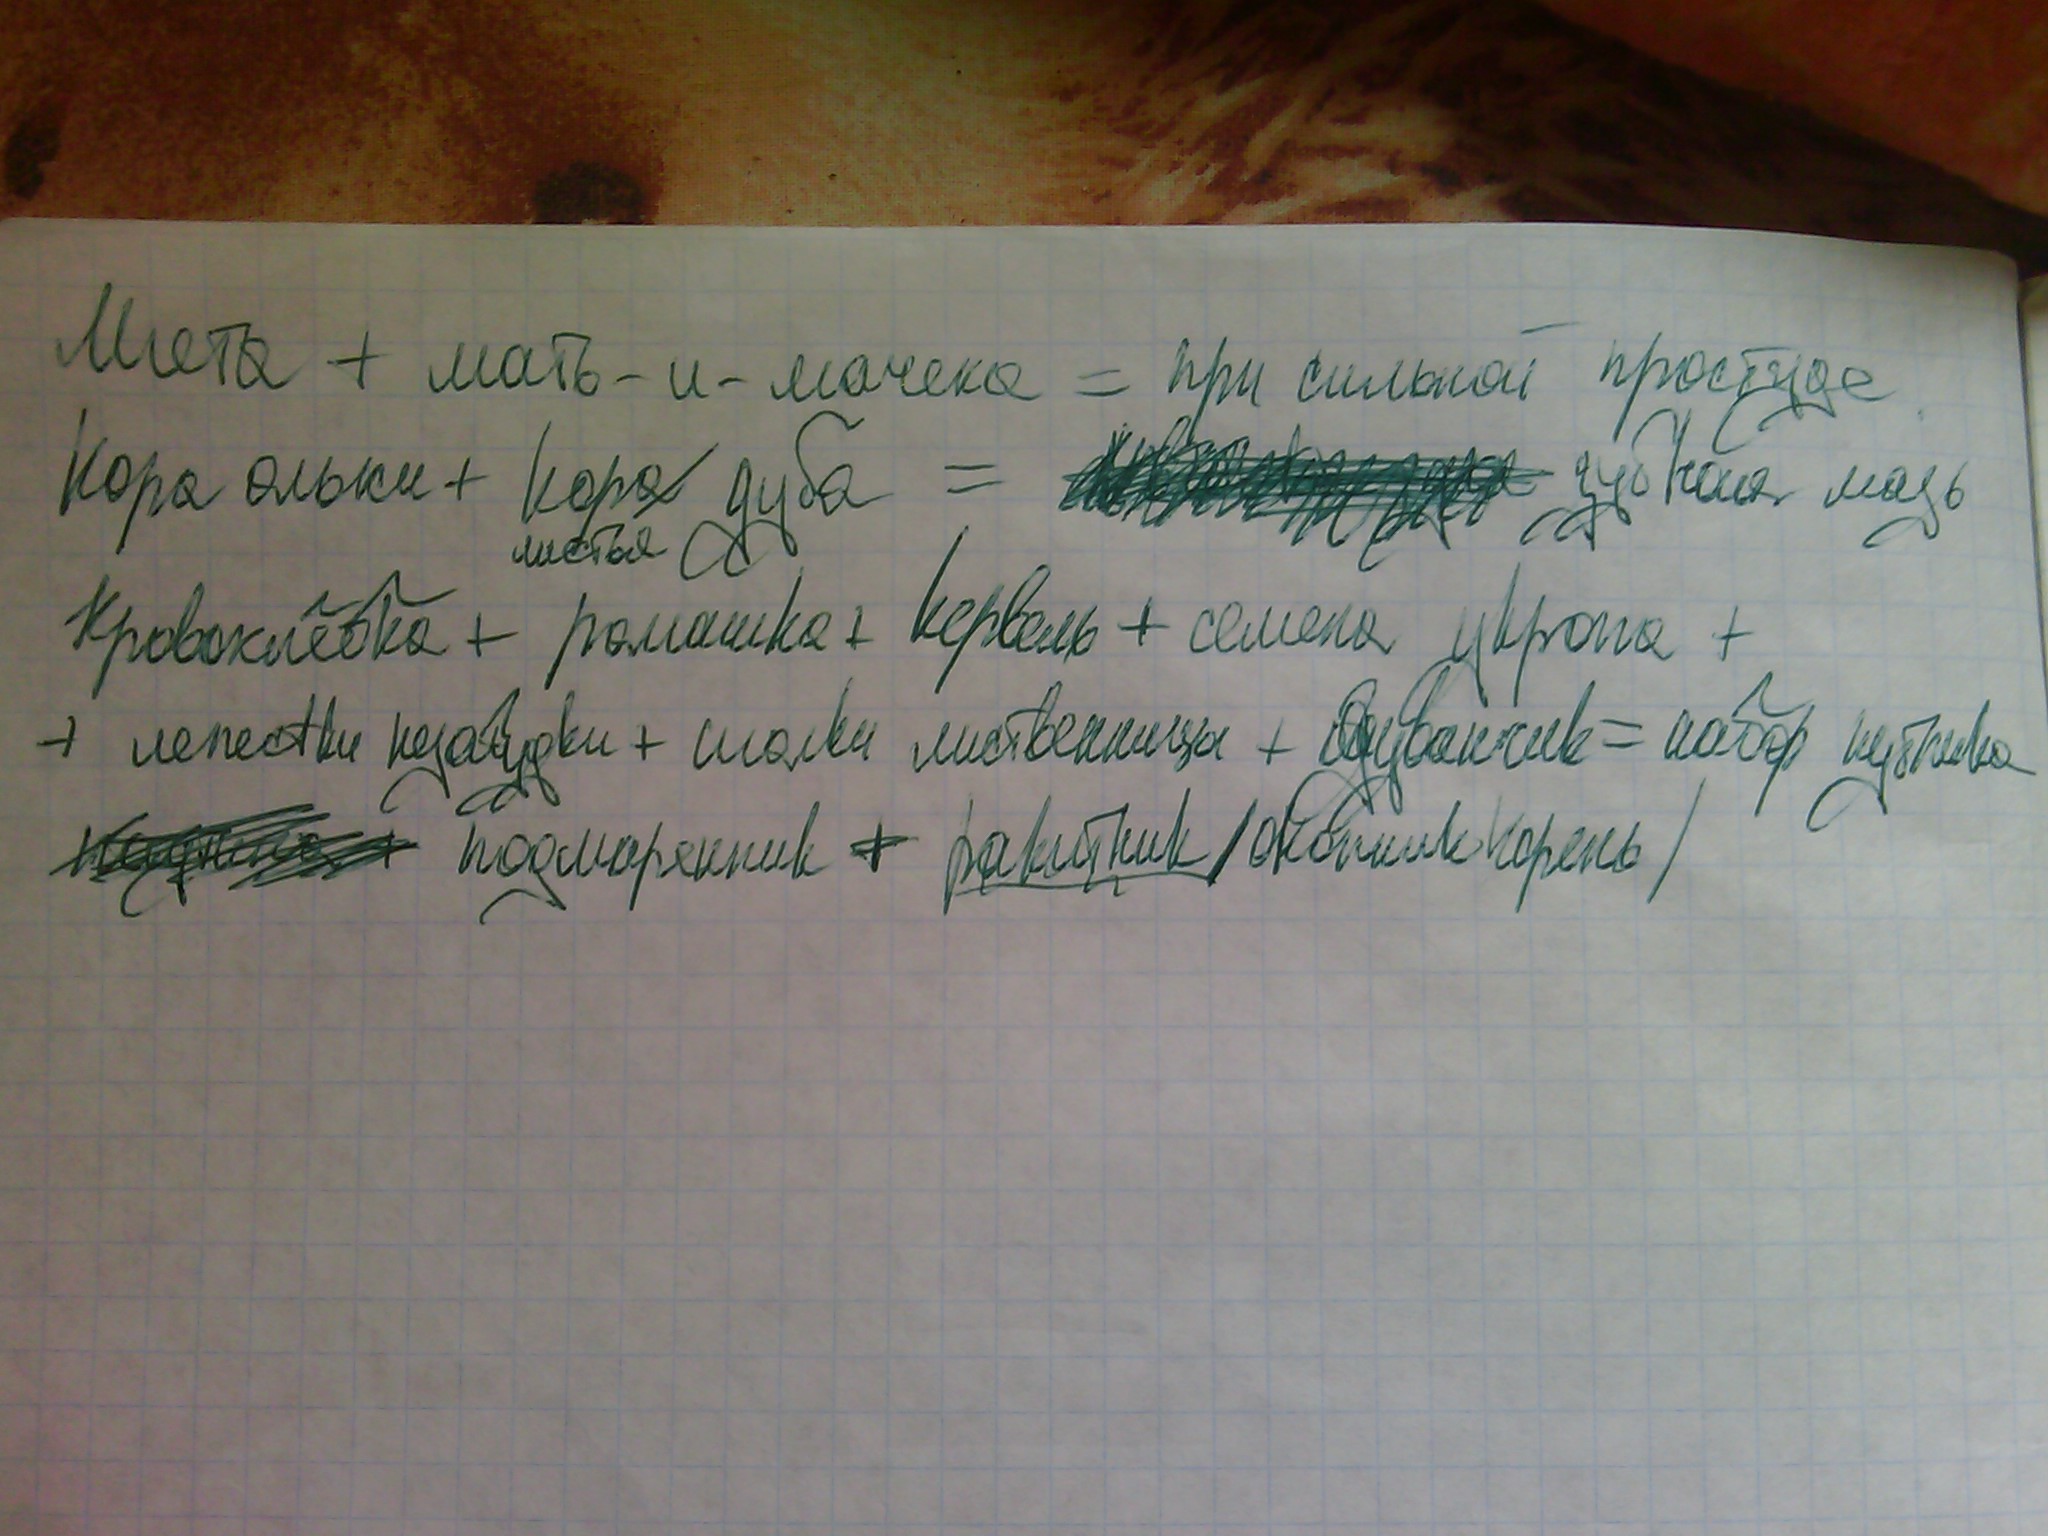 Мята + мать-и-мачеха = при сильной простуде
Кора ольхи + кора дуба = дубная мазь
листья
Кровохлёбка + ромашка + кервель + семена укропа +
+ лепестки незабудки + шишки лиственницы + одуванчик = набор путника
подмаренник + ракитник /окопник корень/